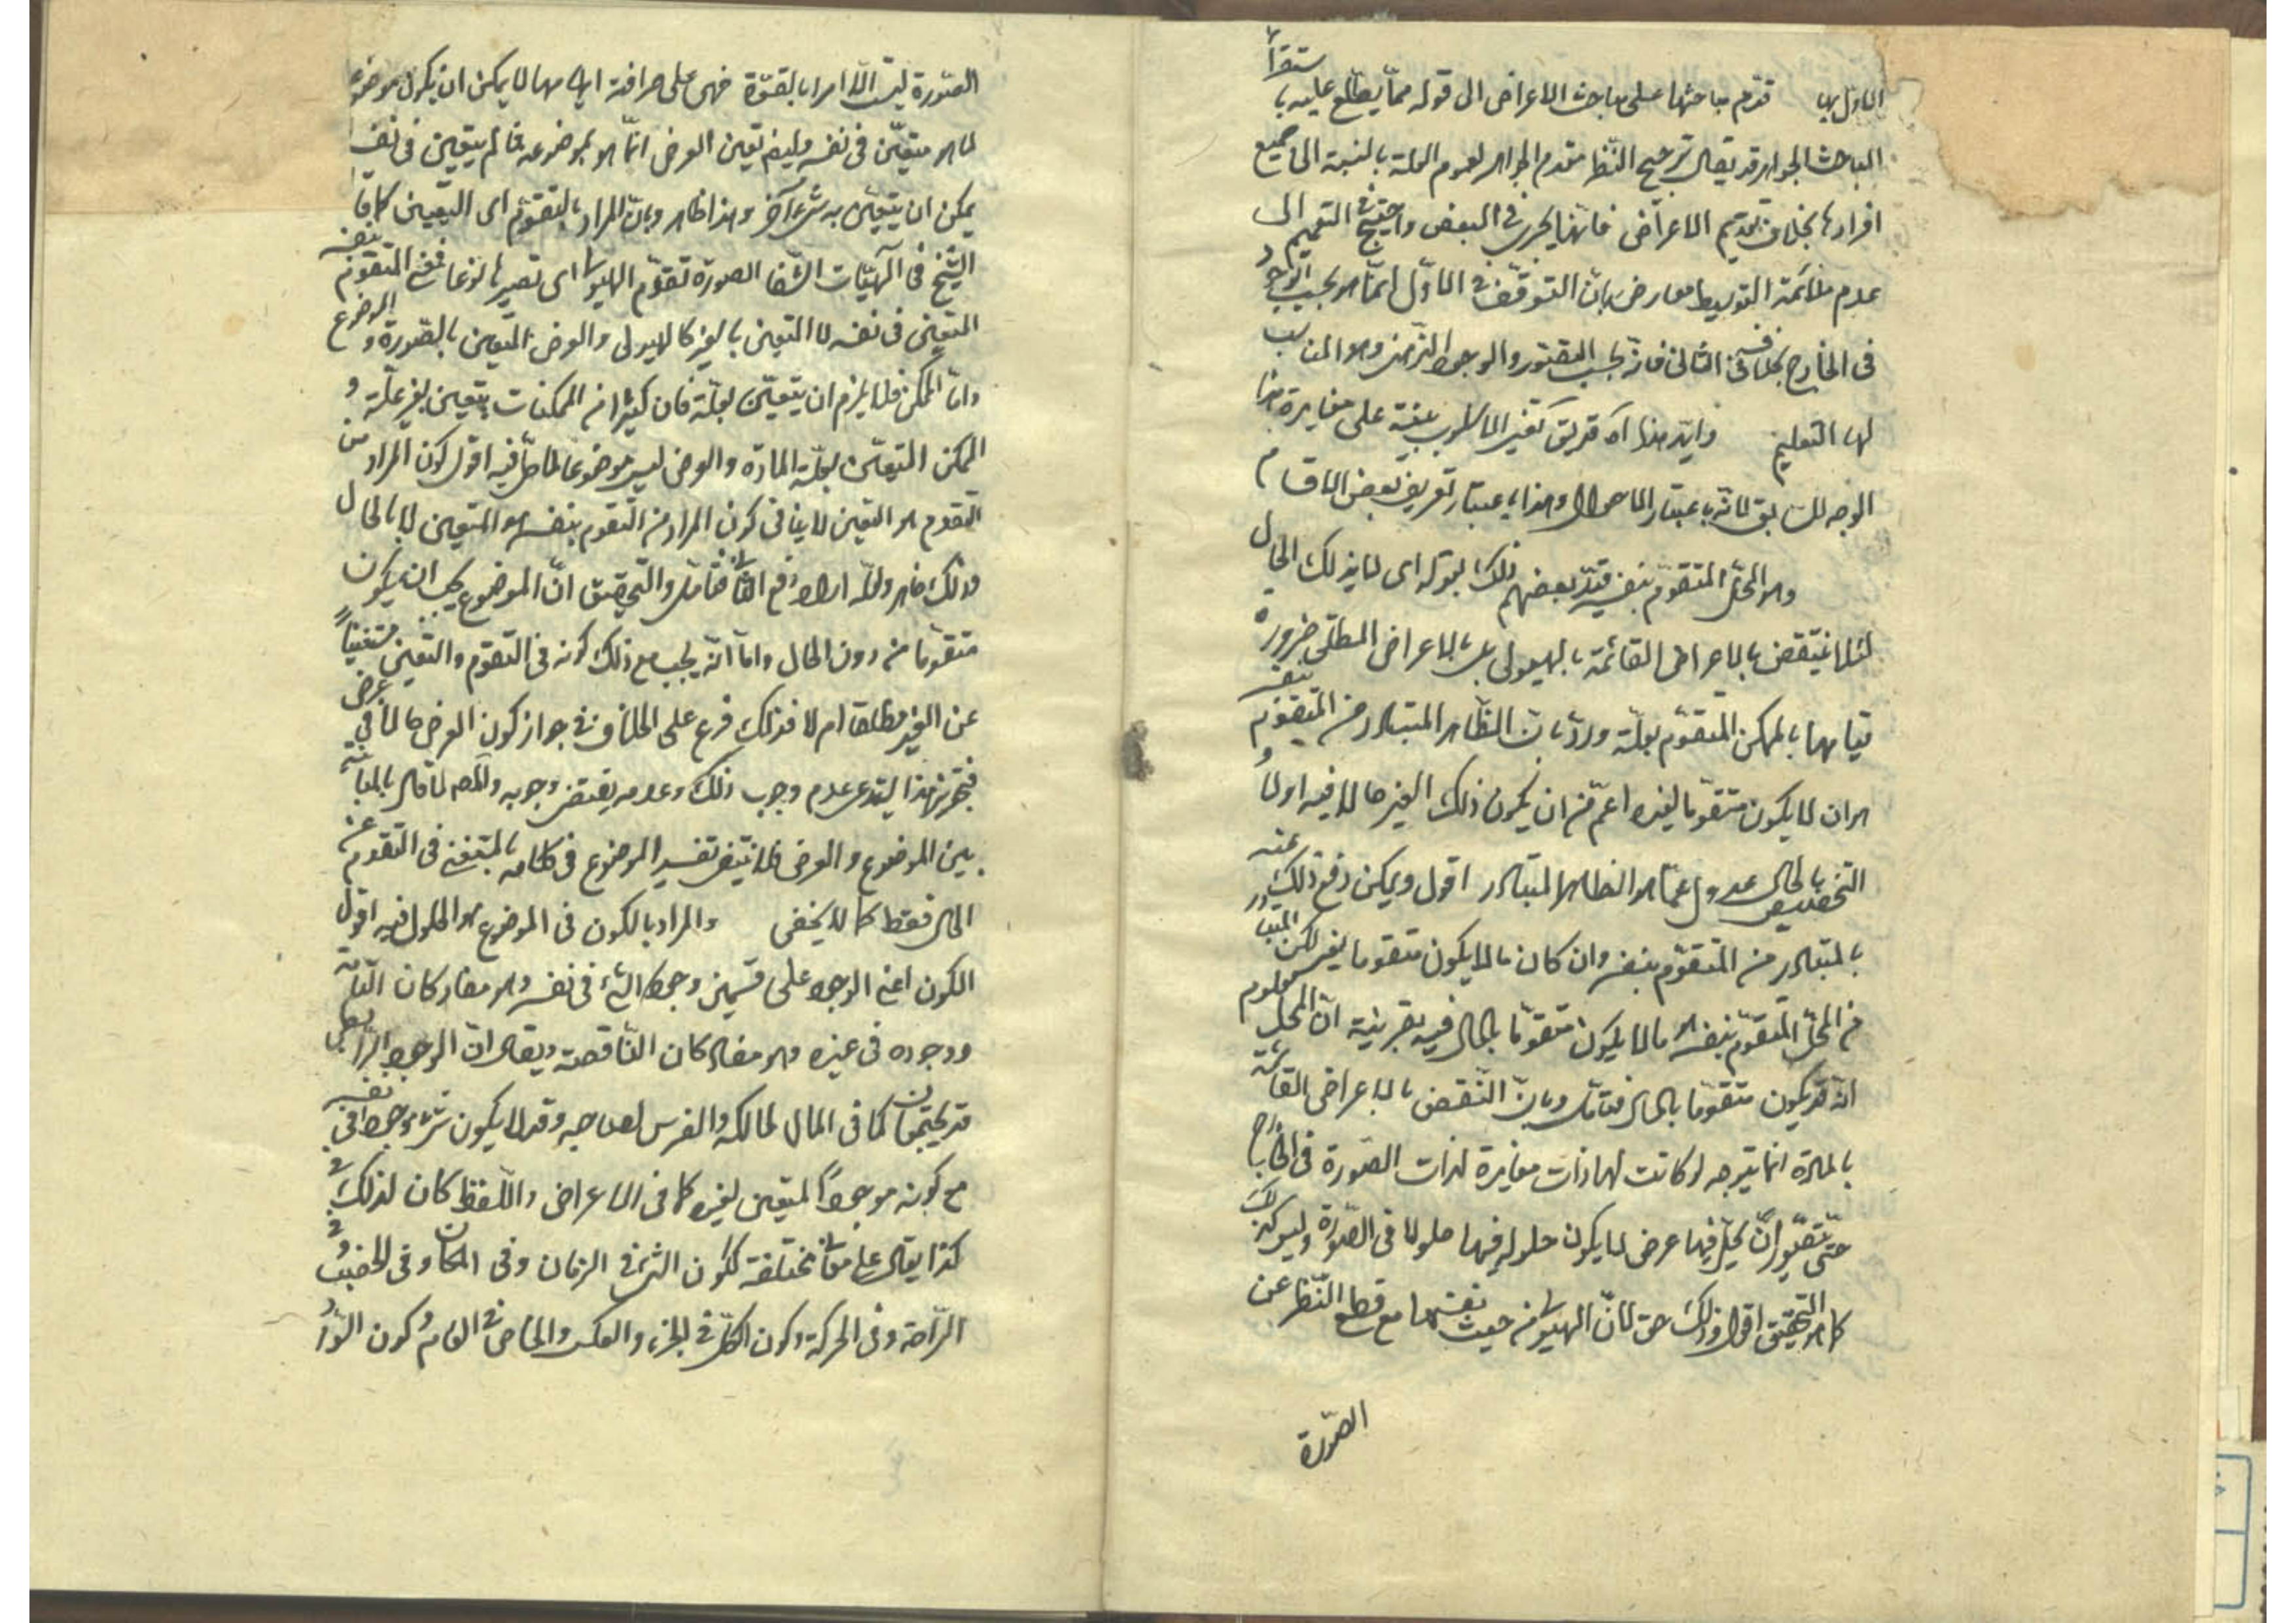 الاول بها قدم مباحثها على مباحث الاعراض الى قوله مما يطلع عليه باستقراء
المباحث الجواهر قد يقال ترجيح النظر متقدم الجواهر لعموم العلة بالنسبة الى جميع
افرادها بخلاف تقديم الاعراض فانه انما يجرى فى البعض واحتيج فى التعميم الى
عدم ملائمة التوسيط معارض بان التوقف فى الاول انما هو بحسب الوجود
فى الخارج بخلافه فى الثانى فانه بحسب التصور والوجود الذهنى وهو المناسب
لهذا التعليم وايد هذا آه قد يق تغير الاسلوب ينبه على مغايرة هذا
الوجه للسابق لانه باعتبار الاحوال وهذا باعتبار تعريف بعض الاقسام
وهو المحل المتقوم بنفسه قيد بعضهم ذلك بقوله اى لا بذلك الحال
لئلا ينتقض بالاعراض القائمة بالهيولى بل بالاعراض المطلق ضرورة
قيامها بالممكن المتقوم بعلته ورد بان الظاهر المتبادر من المتقوم بنفسه
هو ان لا يكون متقوما بغيره اعم من ان يكون ذلك الغير حالا فيه اولا و
التخصيص بالحال عدول عما هو الظاهر المتبادر اقول ويمكن دفع ذلك عنه
بالمتبادر من المتقوم بنفسه وان كان ما لا يكون متقوما بغيره لكن المتبادر
من المحل المتقوم بنفسه هو ما لا يكون متقوما بالحال فيه بقرينة ان المحل معلوم
انه قد يكون متقوما بالحال فتامل وبان النقض بالاعراض القائمة
بالمادة انما يتوجه لو كانت لها ذات مغايرة لذات الصورة فى الخارج
حتى يتصور ان يحل فيها عرض لا يكون حلوله فيها حلولا فى الصورة وليس كذلك
كما هو التحقيق اقول وذلك حق لان الهيولى من حيث نفسها مع قطع النظر عن
الصورة
الصورة ليست الا امرا بالقوة فهى على صرافة ابهامها لا يمكن ان يكون موضوعا
لما هو متعين فى نفسه وايضا تعين العرض انما هو بموضوعه فما لم يتعين فى نفسه
يمكن ان يتعين به شئ آخر وهذا ظاهر وبان المراد بالتقوم اى التعين كما قال
الشيخ فى الهيات الشفا الصورة تقوم الهيولى اى تصيرها نوعا فمعنى المتقوم بنفسه
المتعين فى نفسه لا المتعين بالغير كالهيولى والعرض المتعين بالصورة والموضوع
واما الممكن فلا يلزم ان يتعين بعلته فان كثيرا من الممكنات يتعين بغير علته و
الممكن المتعين بعلته المادة والعرض ليس موضوعا لما حل فيه اقول كون المراد من
التقوم هو التعين لا ينافى كون المراد من المتقوم بنفسه هو المتعين لا بالحال
وذلك ظاهر ولعله اراد دفع النقض فتامل والتحقيق ان الموضوع يجب ان يكون
متقوما من دون الحال واما انه يجب مع ذلك كونه فى التقوم والتعين مستغنيا
عن الغير مطلقا ام لا فذلك فرع على الخلاف فى جواز كون العرض حالا فى عرض
فتجويز هذا يستدعى عدم وجوب ذلك وعدمه يقتضى وجوبه والمصـ لما قال بالمباينة
بين الموضوع والعرض فلا يتيسر تفسير الموضوع فى كلامه بالمستغنى فى التقوم عن
الحال فقط كما لا يخفى والمراد بالكون فى الموضوع هو الحلول فيه اقول
الكون اعنى الوجود على قسمين وجود الشئ فى نفسه وهو مفاد كان التامة
ووجوده فى غيره وهو مفاد كان الناقصة ويقال ان الوجود الرابطى
قد يجتمعان كما فى المال لمالكه والفرس لصاحبه وقد لا يكون شئ موجودا فى نفسه
مع كونه موجودا لغيره كما فى الاعراض واللفظ كان لذلك و
كذا يقال على معان مختلفة ككون الشئ فى الزمان وفى المكان وفى الخصب و فى
الراحة وفى الحركة وكون الكل فى الجزء والعكس والخاص فى العام وكون